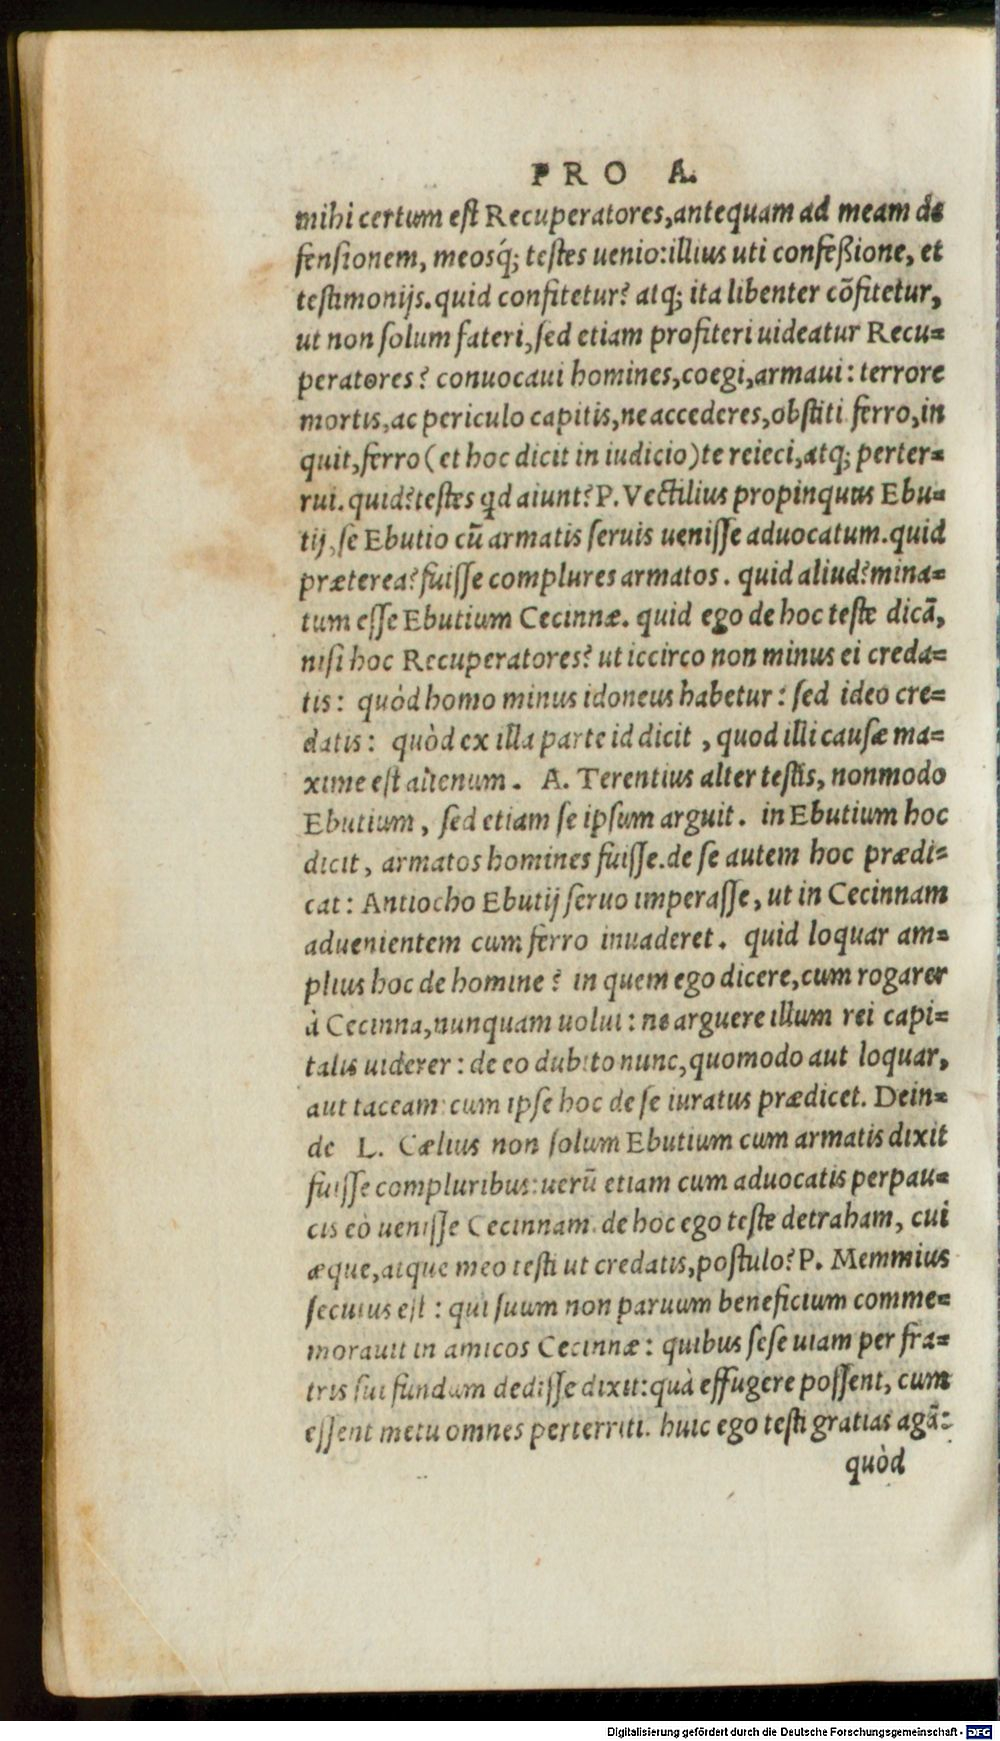 PRO A.
mihi certum est Recuperatores,antequam ad meam de
fensionem, meosq́; testes uenio:illius uti confeßione, et
testimonijs.quid confitetur? atq; ita libenter cõfitetur,
ut non solum fateri,sed etiam profiteri uideatur Recu=
peratores? conuocaui homines,coegi,armaui: terrore
mortis,ac periculo capitis,ne accederes,obstiti ferro,in
quit,ferro(et hoc dicit in iudicio)te reieci,atq; perter=
rui.quid?testes qd aiunt?P.Vectilius propinquus Ebu=
tij,se Ebutio cũ armatis seruis uenisse aduocatum.quid
præterea?fuisse complures armatos. quid aliud?mina=
tum esse Ebutium Cecinnæ. quid ego de hoc teste dicã,
nisi hoc Recuperatores? ut iccirco non minus ei creda=
tis: quòd homo minus idoneus habetur: sed ideo cre=
datis: quòd ex illa parte id dicit , quod illi causæ ma=
xime est alienum. A. Terentius alter testis, nonmodo
Ebutium, sed etiam se ipsum arguit. in Ebutium hoc
dicit, armatos homines fuisse.de se autem hoc prædi=
cat: Antiocho Ebutij seruo imperasse, ut in Cecinnam
aduenientem cum ferro inuaderet. quid loquar am=
plius hoc de homine? in quem ego dicere,cum rogarer
à Cecinna,nunquam uolui: ne arguere illum rei capi=
talis uiderer: de eo dubito nunc,quomodo aut loquar,
aut taceam: cum ipse hoc de se iuratus prædicet. Dein=
de L. Cælius non solum Ebutium cum armatis dixit
fuisse compluribus:uerũ etiam cum aduocatis perpau=
cis eò uenisse Cecinnam. de hoc ego teste detraham, cui
æque,atque meo testi ut credatis,postulo?P. Memmius
secutus est: qui suum non paruum beneficium comme=
morauit in amicos Cecinnæ: quibus sese uiam per fra=
tris sui fundum dedisse dixit:quà effugere possent, cum
essent metu omnes perterriti. huic ego testi gratias agã:
quòd
Digitalisierung gefördert durch die Deutsche Forschungsgemeinschaft - DFG